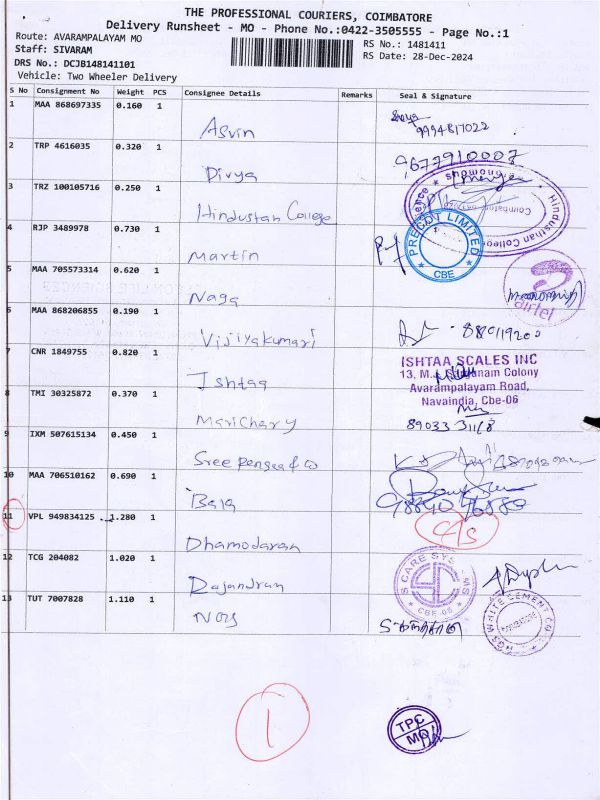 THE PROFESSIONAL COURIERS, COIMBATORE
Delivery Runsheet - MO - Phone No.:0422-3505555 - Page No.:1
Route: AVARAMPALAYAM MO
RS No.: 1481411
Staff: SIVARAM
RS Date: 28-Dec-2024
DRS No.: DCJB148141101
Vehicle: Two Wheeler Delivery
S No Consignment No Weight PCS Consignee Details Remarks Seal & Signature
1 MAA 868697335 0.160 1
Asvin
9994817022
2 TRP 4616035 0.320 1
Divya
9677910007
3 TRZ 100105716 0.250 1
Hindustan College
Hindusthan College
Coimbatore
4 RJP 3489978 0.730 1
Martin
PRECOT LIMITED
CBE
5 MAA 705573314 0.620 1
Naga
airtel
6 MAA 868206855 0.190 1
Vijiyakumari
7 CNR 1849755 0.820 1
Ishtaa
ISHTAA SCALES INC
Colony
Avarampalayam Road,
Navaindia, Cbe-06
8 TMI 30325872 0.370 1
Marichary
89033 31168
9 IXM 507615134 0.450 1
10 MAA 706510162 0.690 1
Bala
11 VPL 949834125 1.280 1
Dhamodaran
C/S
12 TCG 204082 1.020 1
Rajandran
S CARE SYSTEMS
CBE-05
13 TUT 7007828 1.110 1
WHITE CEMENT
1
TPC
MO